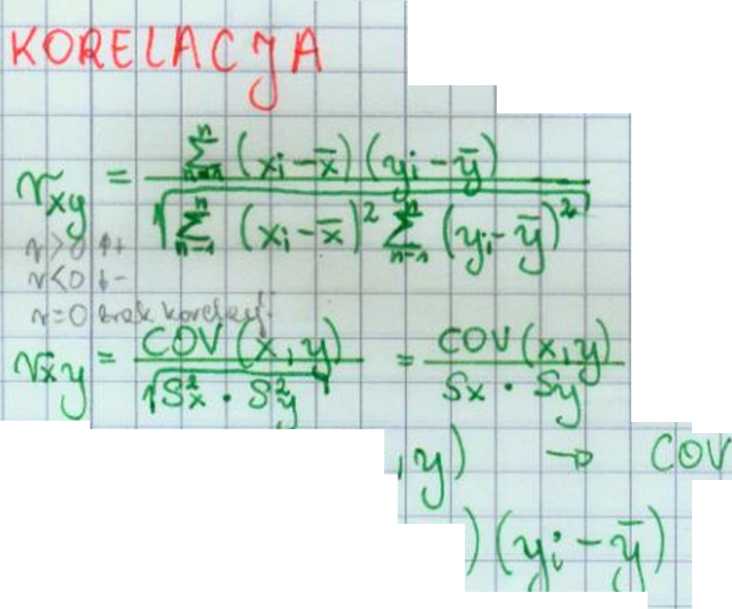 KORELACJA
r_xy = \frac{\sum_{n=1}^{n} (x_i - \bar{x}) (y_i - \bar{y})}{\sqrt{\sum_{n=1}^{n} (x_i - \bar{x})^2 \sum_{n=1}^{n} (y_i - \bar{y})^2}}
r>0 ↑+
r<0 ↓-
r=0 brak korelacji
r_xy = \frac{COV(x,y)}{\sqrt{S_x^2 \cdot S_y^2}} = \frac{COV(x,y)}{S_x \cdot S_y}
,y) → COV
)(y_i - \bar{y})